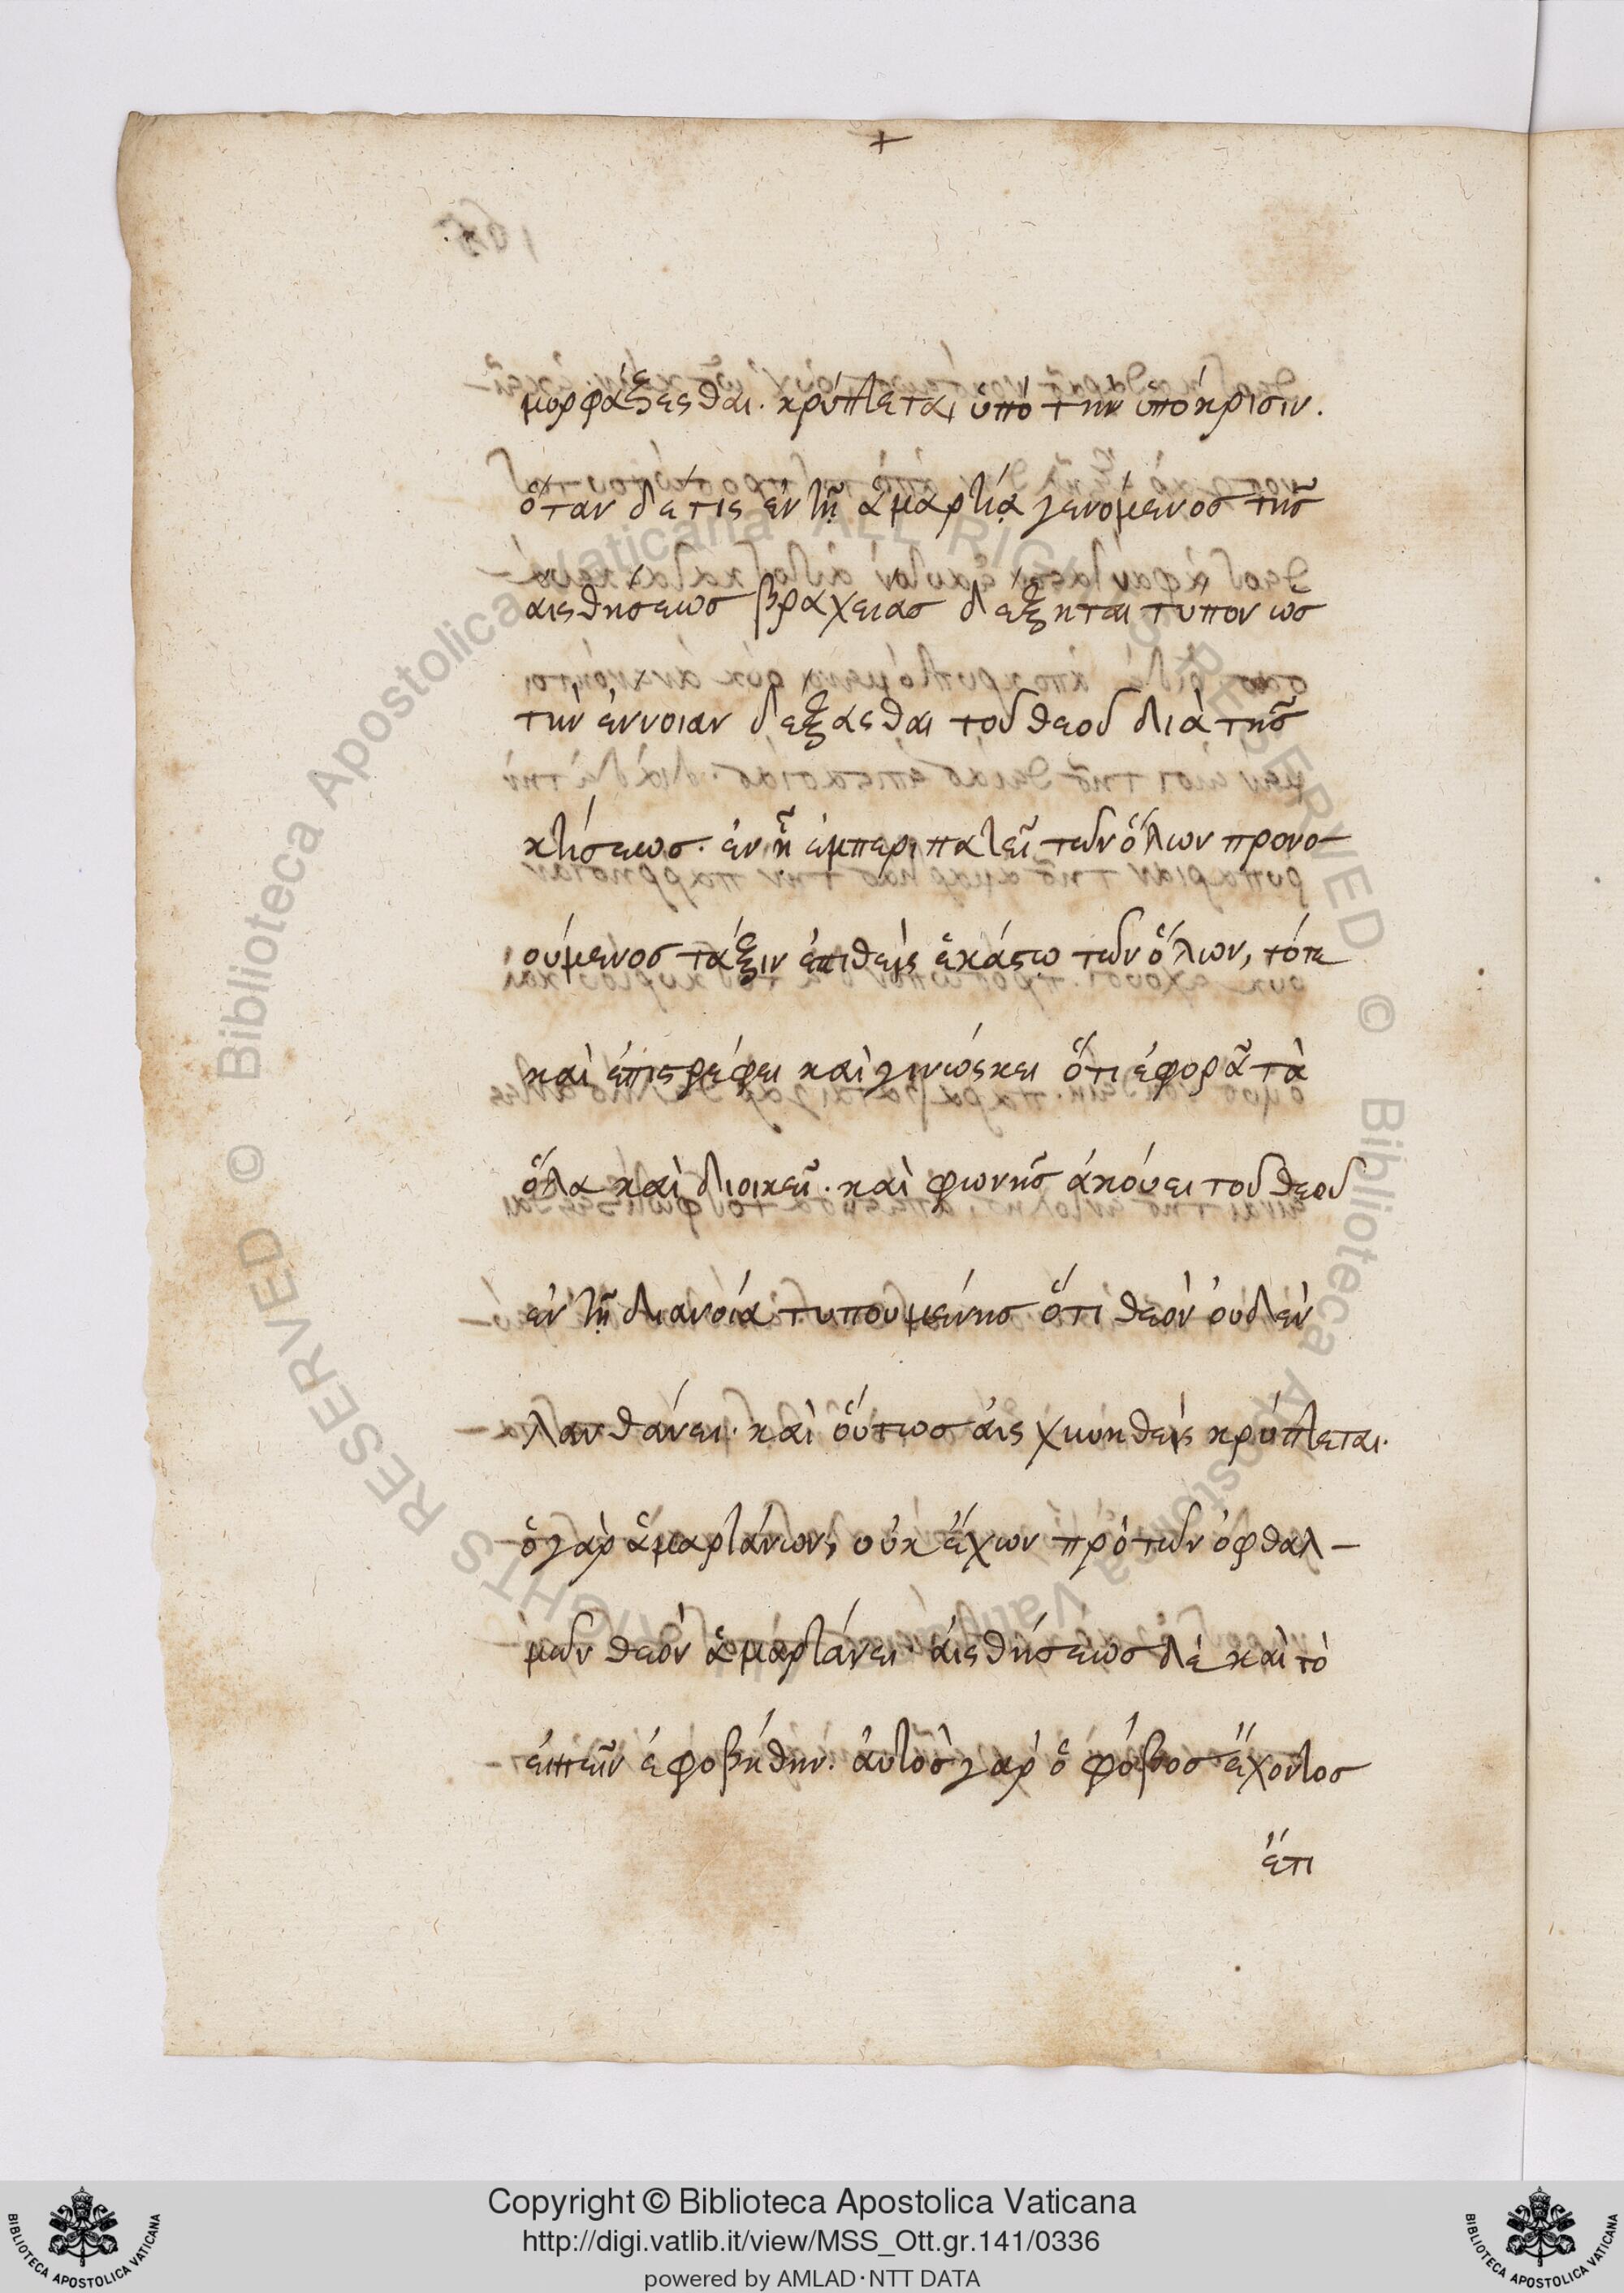 +
μορφάζεσθαι. κρύπτεται ὑπὸ τὴν ὑπόκρισιν.
ὅταν δέ τις ἐν τῇ ἁμαρτίᾳ γενόμενος τῆς
αἰσθήσεως βραχείας δέξηται τύπον ὡς
τὴν ἔννοιαν δέξασθαι τοῦ θεοῦ διὰ τῆς
κτίσεως. ἐν ᾗ ἐμπεριπατεῖ τῶν ὅλων προνο-
ούμενος τάξιν ἐπιθεὶς ἑκάστῳ τῶν ὅλων, τότε
καὶ ἐπιστρέφει καὶ γινώσκει ὅτι ἐφορᾷ τὰ
ὅλα καὶ διοικεῖ. καὶ φωνῆς ἀκούει τοῦ θεοῦ
ἐν τῇ διανοίᾳ τυπουμένης ὅτι θεὸν οὐδὲν
λανθάνει. καὶ οὕτως αἰσχυνθεὶς κρύπτεται.
ὁ γὰρ ἁμαρτάνων, οὐκ ἔχων πρὸ τῶν ὀφθαλ-
μῶν θεὸν ἁμαρτάνει. αἰσθήσεως δὲ καὶ τὸ
εἰπεῖν ἐφοβήθην. αὐτὸς γὰρ ὁ φόβος ἔχοντος
ἔτι
Copyright © Biblioteca Apostolica Vaticana
http://digi.vatlib.it/view/MSS_Ott.gr.141/0336
powered by AMLAD·NTT DATA
BIBLIOTECA APOSTOLICA VATICANA
BIBLIOTECA APOSTOLICA VATICANA